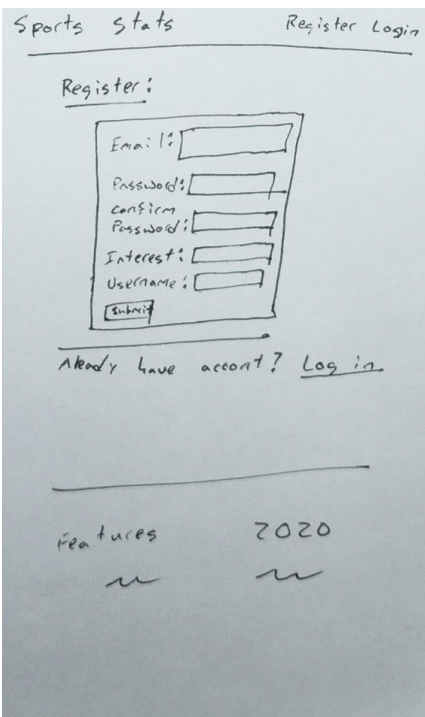 Sports Stats Register Login
Register:
Email:
Password:
Confirm
Password:
Interest:
Username:
Submit
Already have accont? Log in
Features 2020